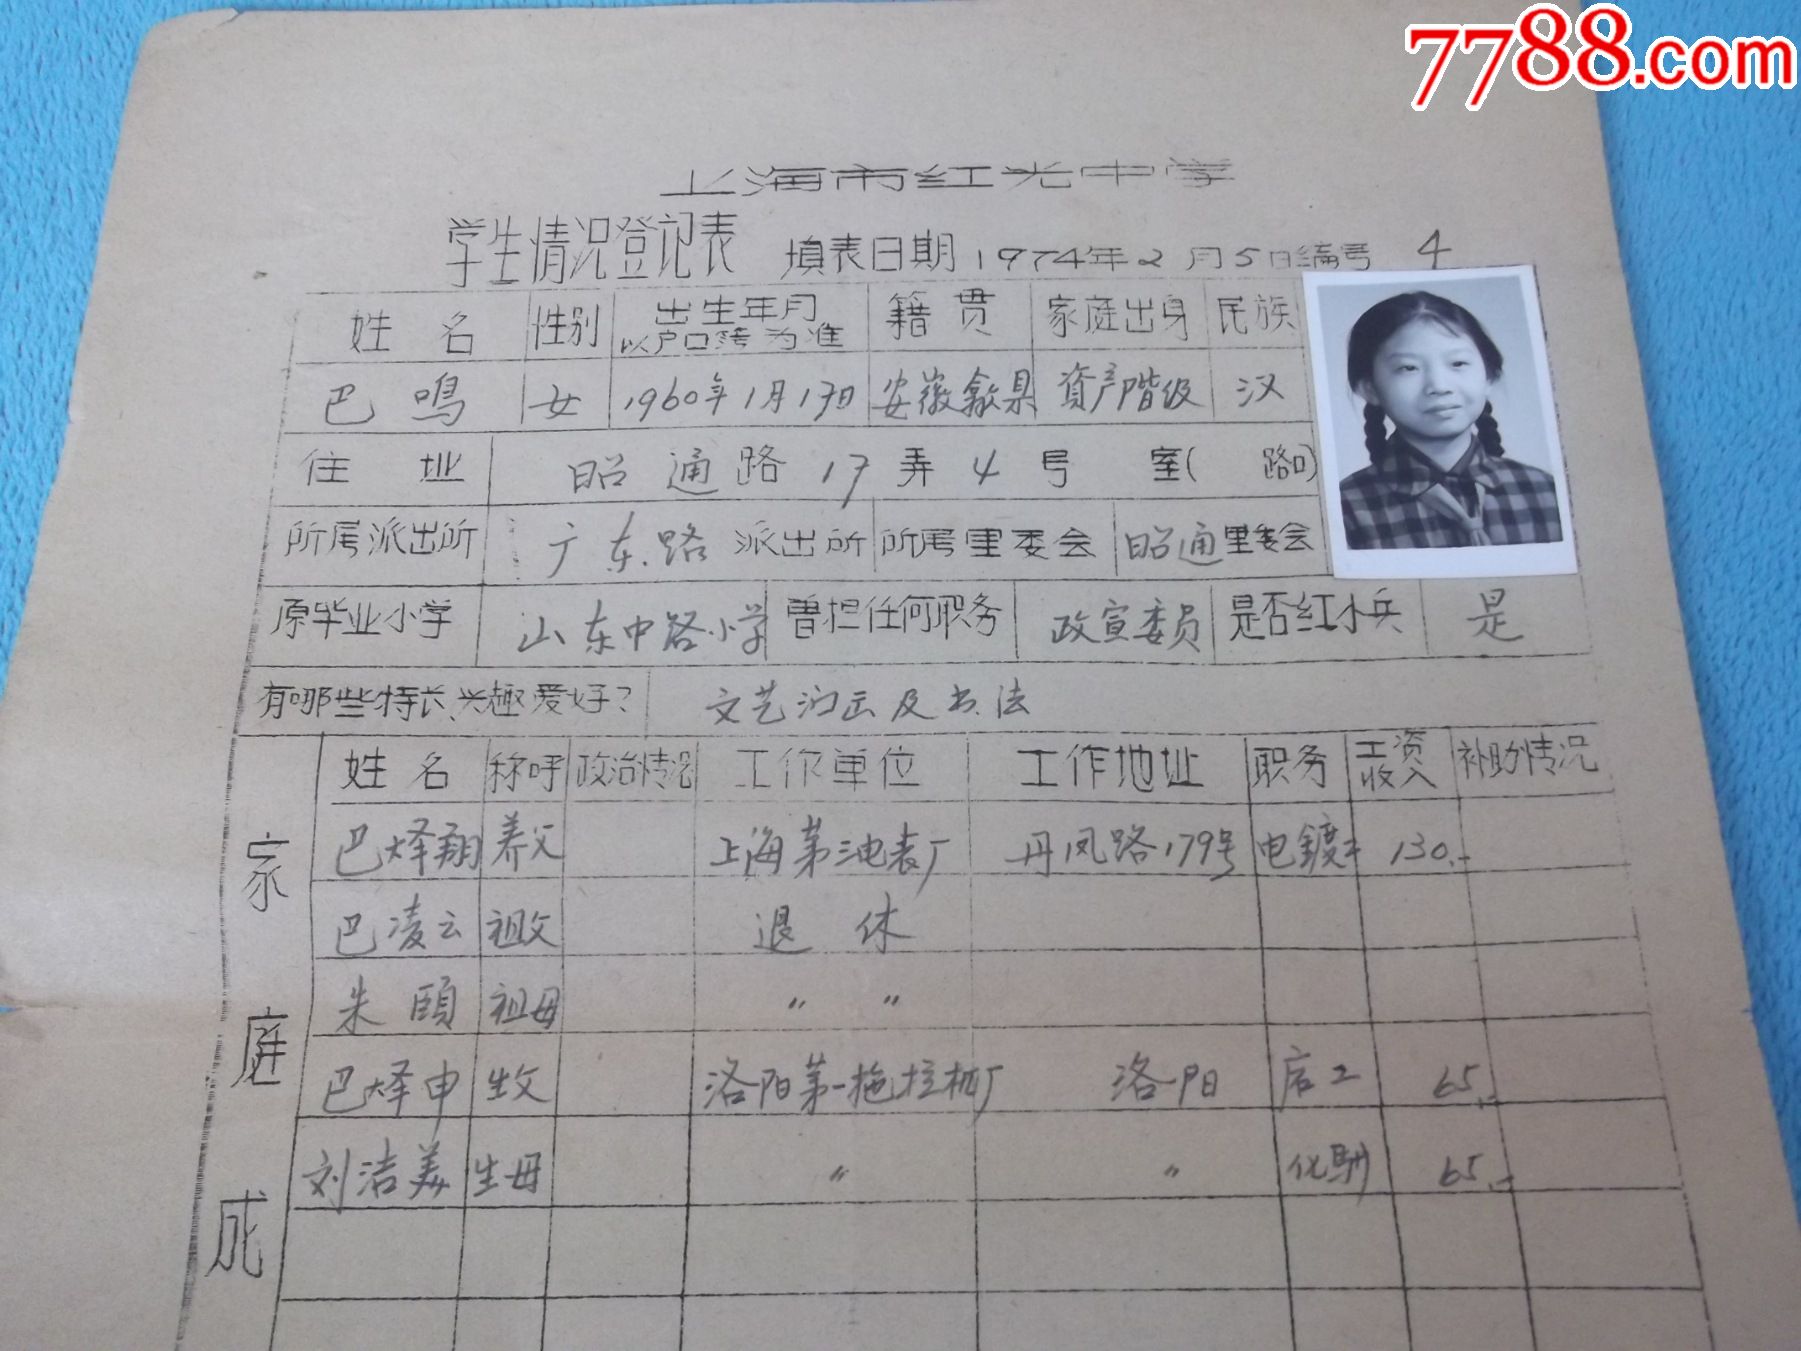 7788.com
上海市红光中学
学生情况登记表 填表日期1974年2月5日编号 4
姓名 性别 出生年月 以户口簿为准 籍贯 家庭出身 民族
巴鸣 女 1960年1月17日 安徽歙县 資产阶级 汉
住址 昭通路17弄4号 室( 路口)
所属派出所 广东路派出所 所属里委会 昭通里委会
原毕业小学 山东中路小学 曾担任何职务 政宣委员 是否红小兵 是
有哪些特长、兴趣爱好? 文艺 及书法
家庭成
姓名 称呼 政治情况 工作单位 工作地址 职务 工资收入 补助情况
巴烽翔 养父 上海第三电表厂 丹凤路179号 电鍍工 130.-
巴凌云 祖父 退休
朱頤 祖母 〃 〃
巴烽申 生父 洛阳第一拖拉机厂 洛阳 65.-
刘洁美 生母 〃 〃 65.-